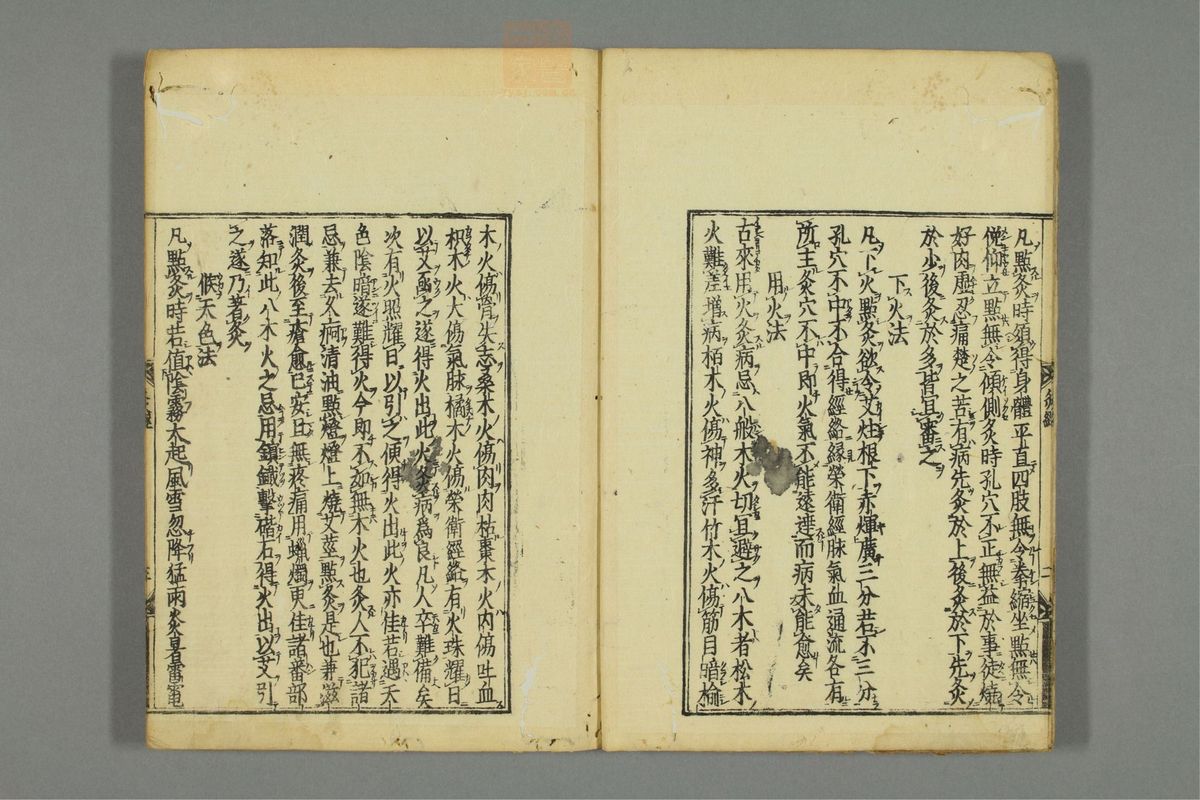 凡點灸時須得身體平直四肢無令拳縮坐點無令
俛仰立點無令傾側灸時孔穴不正無益於事徒燒
好肉虛忍痛楚之苦有病先灸於上後灸於下先灸
於少後灸於多皆宜審之
下火法
凡下火點灸欲令艾炷根下赤煇廣三分若不三分
孔穴不中不合得經絡緣榮衛經脉氣血通流各有
所主灸穴不中即火氣不能遠達而病未能愈矣
用火法
古來用火灸病忌八般木火切宜避之八木者松木
火難差增病栢木火傷神多汗竹木火傷筋目暗榆
木火傷骨失志桑木火傷肉肉枯棗木火內傷吐血
枳木火大傷氣脉橘木火傷榮衛經絡有火珠耀日
以艾承之遂得火出此火灸病爲良凡人卒難備矣
次有火照耀日以引之便得火出此火亦佳若遇天
色陰暗遂難得火今即不如無木火也灸人不犯諸
忌兼去久痾清油點燈燈上燒艾莖點灸是也兼滋
潤灸後至瘡愈已安且無疼痛用蠟燭更佳諸番部
落知此八木火之忌用鑌鐵擊碏石得火出以艾引
之遂乃著灸
候天色法
凡點灸時若值陰霧大起風雪忽降猛雨炎暑雷電